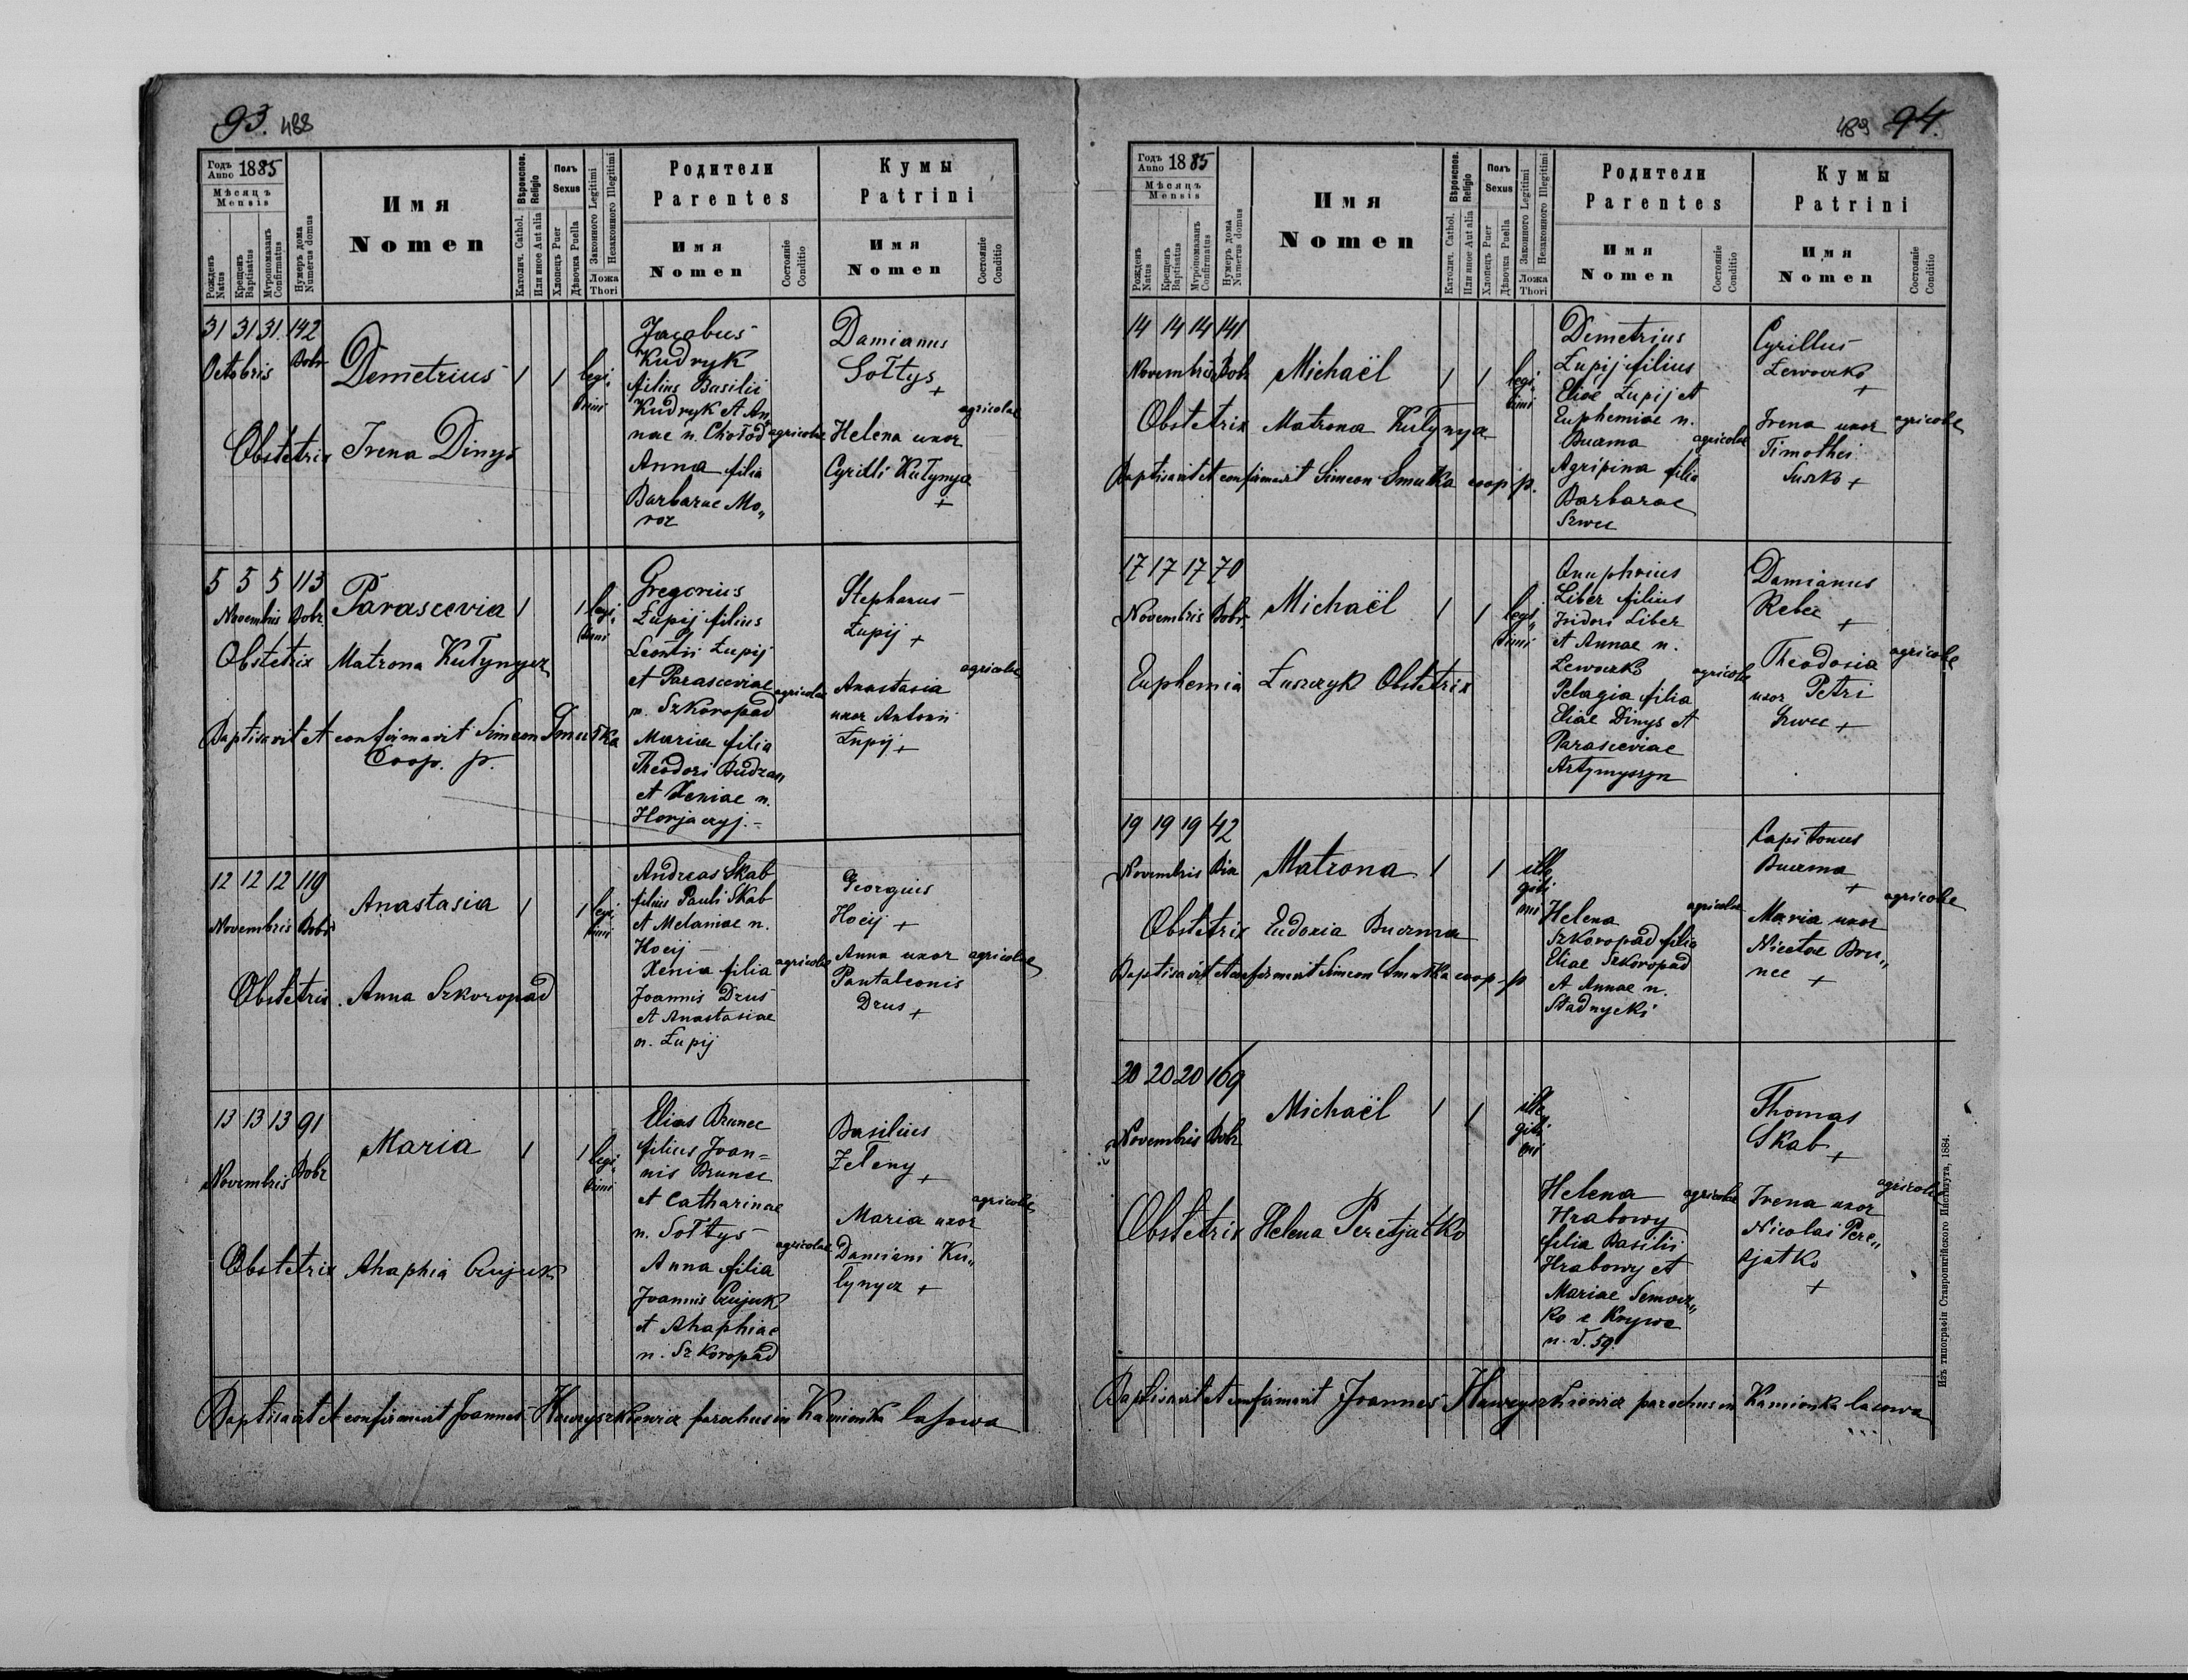 93. 488
Годъ Anno 1885
Мѣсяцъ
Mensis
Рожденъ Natus
Крещенъ Baptisatus
Мѵропомазанъ Confirmatus
Нумеръ дома Numerus domus
Имя
Nomen
Вѣроиспов. Religio
Католич. Cathol.
Или иное Aut alia
Полъ
Sexus
Хлопецъ Puer
Дѣвочка Puella
Законного Legitimi
Незаконного Illegitimi
Ложа
Thori
Родители
Parentes
Имя
Nomen
Состояніе
Conditio
Кумы
Patrini
Имя
Nomen
Состояніе
Conditio
31 31 31 142
Octobris Dobr
Demetrius 1 1 legi„
timi
Jacobus
Kudryk
filius Basilii
Kudryk et An„
nae n. Chołod agricolae
Anna filia
Barbarae Mo„
roz
Damianus
Sołtys
+
agricolae
Helena uxor
Cyrilli Kułynycz
+
Obstetrix Irena Dinys
5 5 5 113
Novembris Dobr
Parascevia 1 1 legi„
timi
Gregorius
Łupij filius
Leontii Łupij
et Parasceviae agricolae
n. Szkoropad
Maria filia
Theodori Budzan
et Xeniae n.
Horjaczyj.-
Stephanus
Łupij +
agricolae
Anastasia
uxor Antonii
Łupij +
Obstetrix Matrona Kułynycz
Baptisavit et confirmavit Simeon Smutka
Coop. p.
12 12 12 119
Novembris Dobr
Anastasia 1 1 legi„
timi
Andreas Skab
filius Pauli Skab
et Melaniae n.
Hocij
Xenia filia agricolae
Joannis Drus
et Anastasiae
n. Łupij
Georgius
Hocij +
Anna uxor agricolae
Pantaleonis
Drus +
Obstetrix Anna Szkoropad
13 13 13 91
Novembris Dobr
Maria 1 1 legi„
timi
Elias Brunec
filius Joan=
nis Brunec
et Catharinae
n. Sołtys
agricolae
Anna filia
Joannis Czujuk
et Ahaphiae
n. Szkoropad
Basilius
Zełeny +
agricolae
Maria uxor
Damiani Ku„
łynycz +
Obstetrix Ahaphia Czujuk
Baptisavit et confirmavit Joannes Hawryszkiewicz parochus in Kamionka lasowa
489 94.
Годъ Anno 1885
Мѣсяцъ
Mensis
Рожденъ Natus
Крещенъ Baptisatus
Мѵропомазанъ Confirmatus
Нумеръ дома Numerus domus
Имя
Nomen
Вѣроиспов. Religio
Католич. Cathol.
Или иное Aut alia
Полъ
Sexus
Хлопецъ Puer
Дѣвочка Puella
Законного Legitimi
Незаконного Illegitimi
Ложа
Thori
Родители
Parentes
Имя
Nomen
Состояніе
Conditio
Кумы
Patrini
Имя
Nomen
Состояніе
Conditio
14 14 14 141
Novembris Dobr
Michaël 1 1 legi„
timi
Demetrius
Łupij filius
Eliae Łupij et
Euphemiae n.
Buczma agricolae
Agripina filia
Barbarae
Szwec
Cyrillus
Lewoczko
+
Irena uxor agricolae
Timothei
Suszko +
Obstetrix Matrona Kułynycz
Baptisavit et confirmavit Simeon Smutka coop. p.
17 17 17 70
Novembris Dobr.
Michaël 1 1 legi„
timi
Onuphrius
Liber filius
Isidori Liber
et Annae n.
Lewoczko agricolae
Pelagia filia
Eliae Dinys et
Parasceviae
Artymyszyn
Damianus
Rebec
+
Theodosia agricolae
uxor Petri
Szwec +
Euphemia Łuszczyk Obstetrix
19 19 19 42
Novembris Bia
Matrona 1 1 ille
giti
mi
Helena agricolae
Szkoropad filia
Eliae Szkoropad
et Annae n.
Stadnycki
Capitonus
Buczma
+
agricolae
Maria uxor
Nicetae Bru„
nec +
Obstetrix Eudoxia Buczma
Baptisavit et confirmavit Simeon Smutka coop. p
20 20 20 169
Novembris Dobr
Michaël 1 1 ille
giti
mi
Helena agricolae
Hrabowy
filia Basilii
Hrabowy et
Mariae Semocz„
ko e Krywe
n. d. 59.
Thomas
Skab +
agricolae
Irena uxor
Nicolai Pere„
tjatko
+
Obstetrix Helena Peretjatko
Baptisavit et confirmavit Joannes Hawryszkiewicz parochus in Kamionka lasowa
Изъ типографіи Ставропигійского Института, 1884.